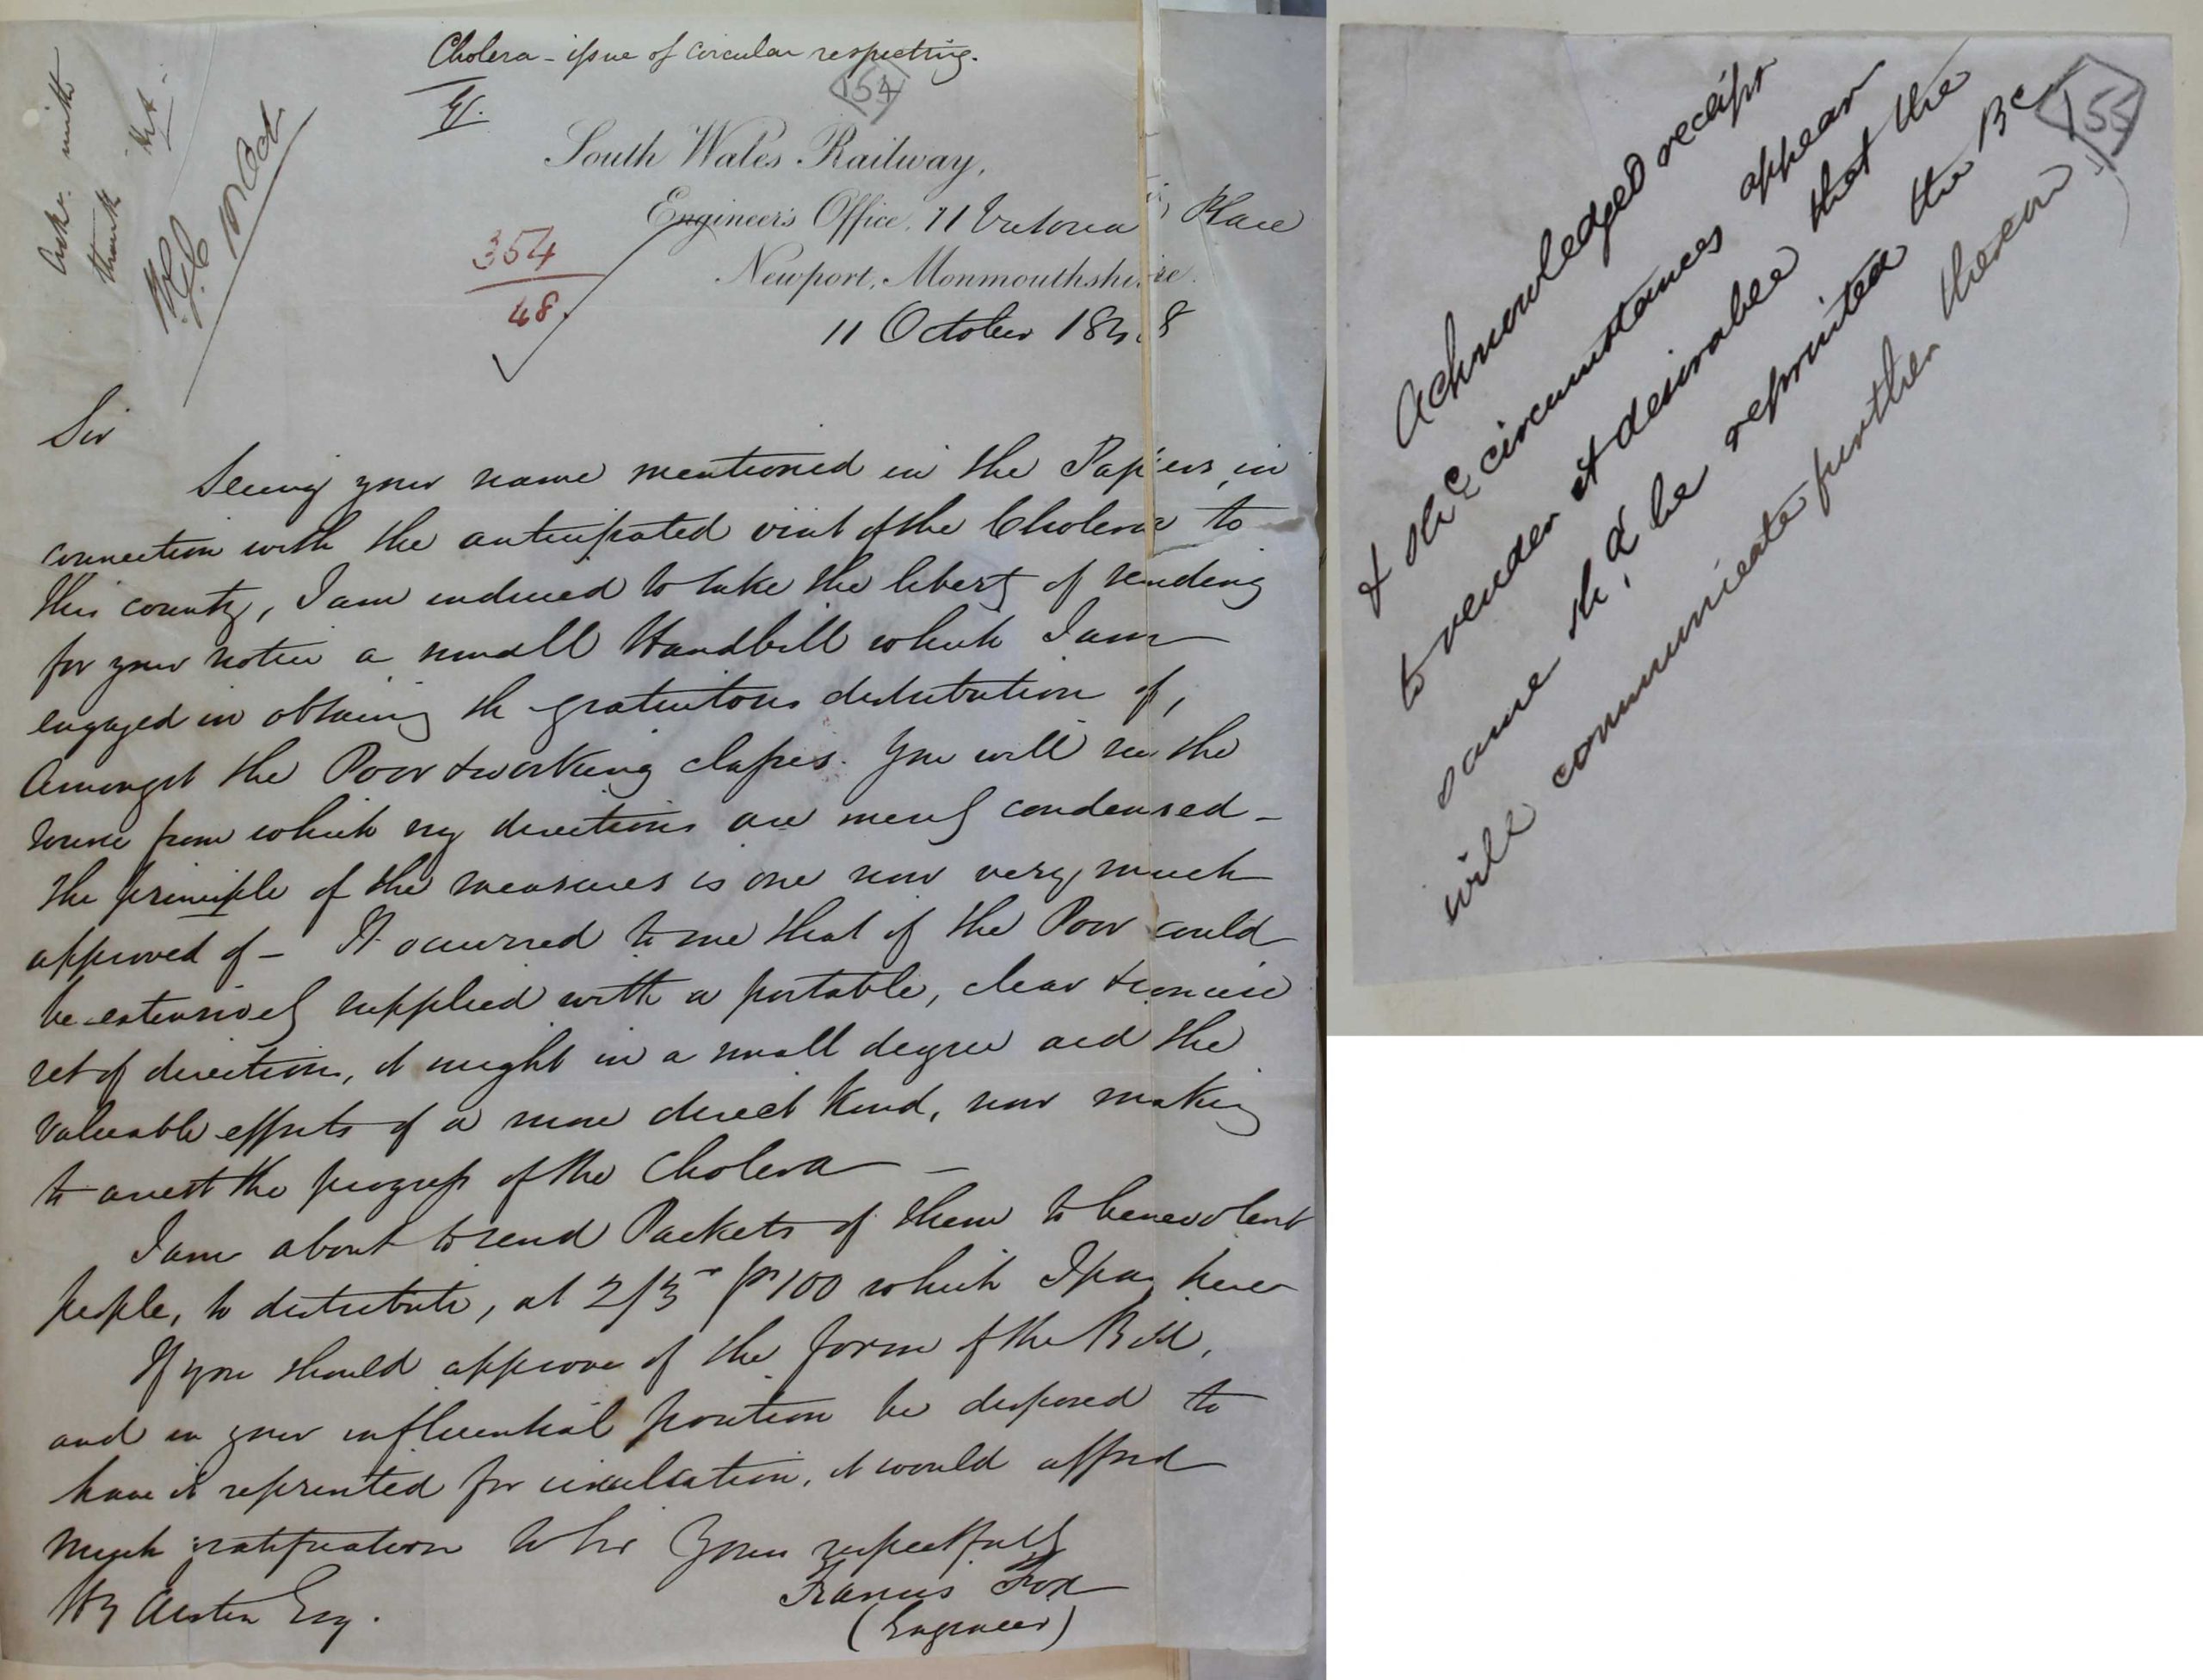 Cholera - issue of circular respecting.
154
South Wales Railway,
Engineer's Office, 11 Victoria Place
Newport, Monmouthshire.
11 October 1848
354
48.
Ack. with
thanks
12 Oct
Sir
Seeing your name mentioned in the Papers, in
connection with the anticipated visit of the Cholera to
this country, I am induced to take the liberty of sending
for your notice a small Handbill which I am
engaged in obtaining the gratuitous distribution of,
amongst the Poor & working classes. You will see the
source from which my directions are merely condensed -
the principle of the measures is one now very much
approved of - It occurred to me that if the Poor could
be extensively supplied with a portable, clear & concise
set of directions, it might in a small degree aid the
valuable efforts of a more direct kind, now making
to arrest the progress of the Cholera -
I am about to send Packets of them to benevolent
people, to distribute, at 2/3 pr 100 which I pay here
If you should approve of the form of the Bill,
and in your influential position be disposed to
have it reprinted for circulation, it would afford
much gratification to Sir Yours respectfully
Francis Fox
(Engineer)
Hy Austin Esq.
155
Acknowledged receipt
& shd circumstances appear
to render it desirable that the
same shd be reprinted the Bd
will communicate further thereon